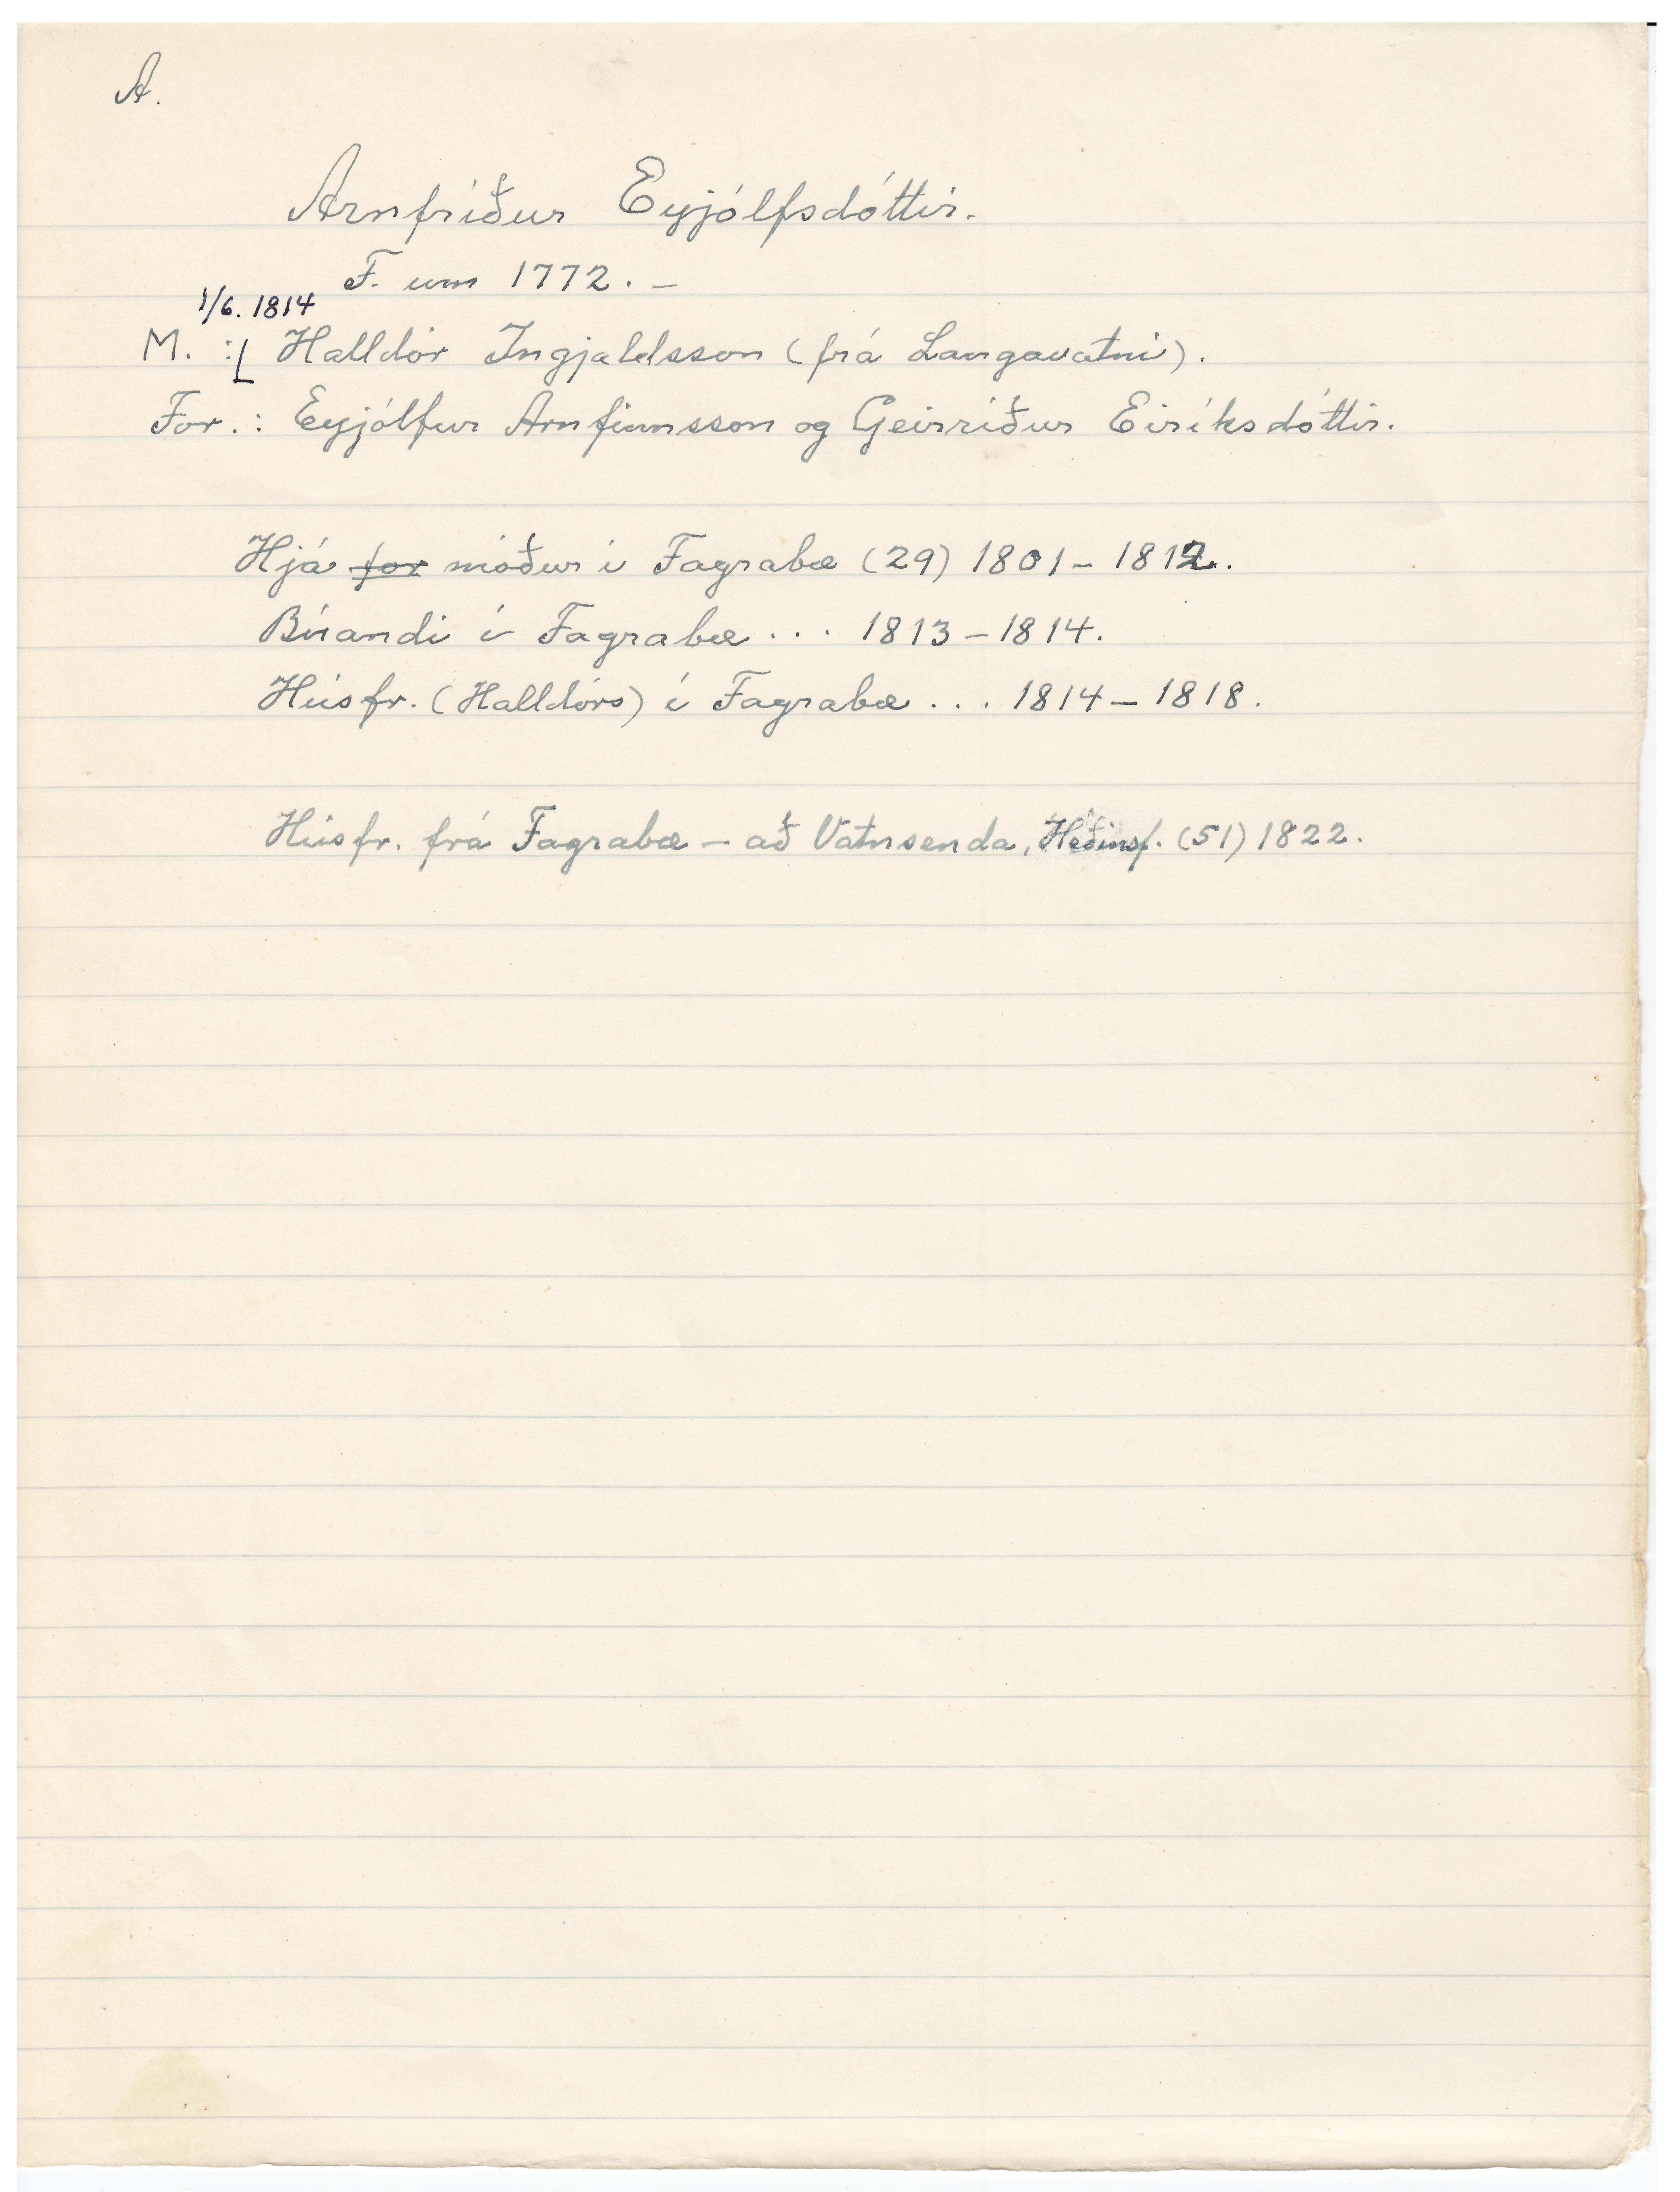 A.
Arnfríður Eyjólfsdóttir.
F. um 1772. –
1/6. 1814
M. : Halldór Ingjaldsson (frá Langavatni).
For. : Eyjólfur Arnfinnsson og Geirríður Eiríksdóttir.
Hjá for móður í Fagrabæ (29) 1801 – 1812.
Búandi í Fagrabæ . . . 1813 – 1814.
Húsfr. (Halldórs) í Fagrabæ . . . 1814 – 1818.
Húsfr. frá Fagrabæ – að Vatnsenda, Héðinsf. (51) 1822.